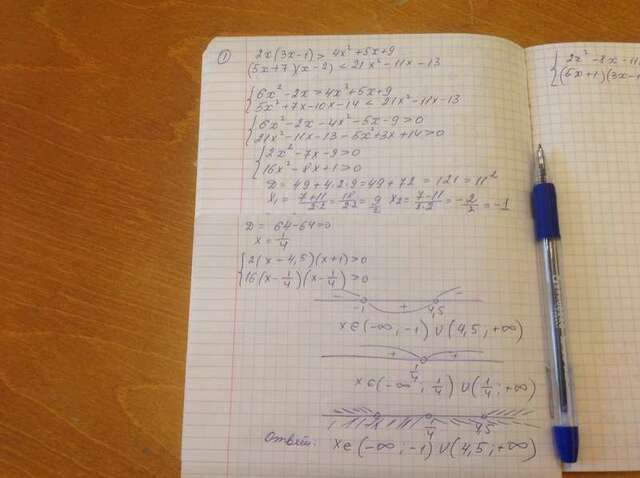 ①
2x(3x-1) > 4x²+5x+9
(5x+7)(x-2) < 21x²-11x-13
{6x²-2x>4x²+5x+9
5x²+7x-10x-14 < 21x²-11x-13
{6x²-2x-4x²-5x-9>0
21x²-11x-13-5x²+3x+14>0
{2x²-7x-9>0
16x²-8x+1>0
D = 49+4·2·9=49+72 = 121 = 11²
x₁= (7+11)/(2·2) = 18/(2·2) = 9/2 x₂= (7-11)/(2·2) = -2/2 = -1
D = 64-64=0
x = 1/4
{2(x-4,5)(x+1)>0
16(x-1/4)(x-1/4)>0
- -1 + 4,5 -
x∈(-∞;-1)∪(4,5;+∞)
+ 1/4 +
x∈(-∞;1/4)∪(1/4;+∞)
1/4 4,5
Ответ: x∈(-∞;-1)∪(4,5;+∞)
{2x²-8x-11
(6x+1)(3x-1